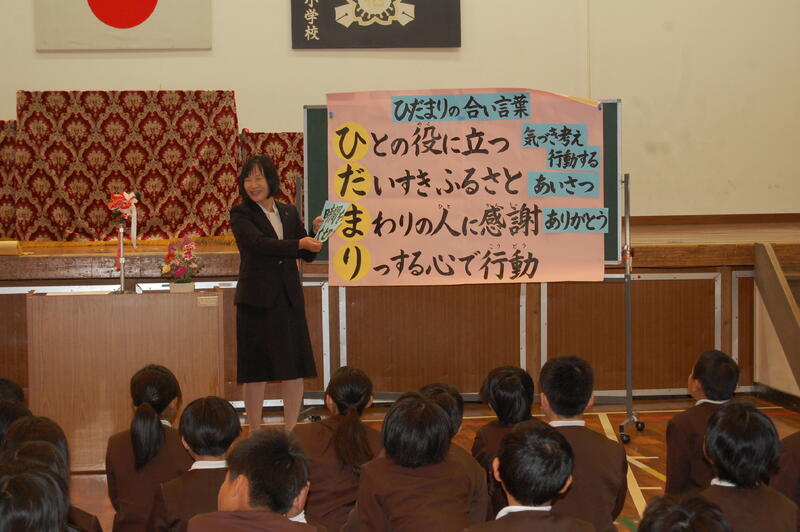 小学校
ひだまりの合い言葉
ひとの役に立つ 気づき考え
行動する
だいすきふるさと あいさつ
まわりの人に感謝 ありがとう
りっする心で行動